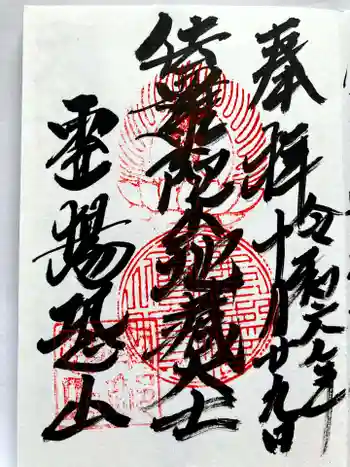 奉拝
令和六年
十月廿九日
伽羅陀山地蔵大士
霊場恐山